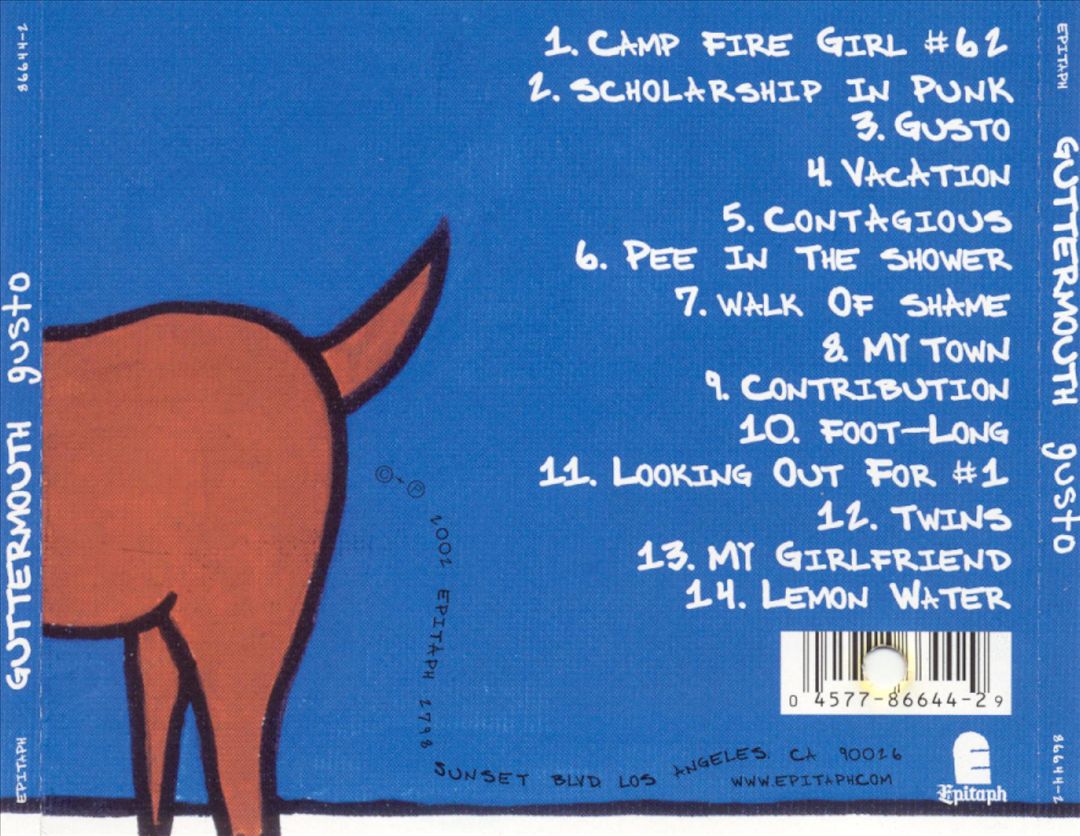 1. CAMP FIRE GIRL #62
2. SCHOLARSHIP IN PUNK
3. GUSTO
4. VACATION
5. CONTAGIOUS
6. PEE IN THE SHOWER
7. WALK OF SHAME
8. MY TOWN
9. CONTRIBUTION
10. FOOT-LONG
11. LOOKING OUT FOR #1
12. TWINS
13. MY GIRLFRIEND
14. LEMON WATER
© + ℗ 2002 EPITAPH 2798 SUNSET BLVD LOS ANGELES. CA 90026
WWW.EPITAPH.COM
0 4577-86644-2 9
Epitaph
86644-2
GUTTERMOUTH gusto
EPITAPH
EPITAPH
GUTTERMOUTH gusto
86644-2